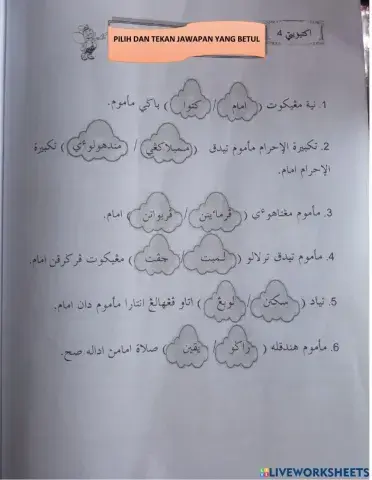 PILIH DAN TEKAN JAWAPAN YANG BETUL
اکتيۏيتي 4
1. نية مڠيکوت ( امام / کتوا ) باݢي مأموم.
2. تکبيرة الإحرام مأموم تيدق ( ممبلاکڠي / مندهولوءي ) تکبيرة
الإحرام امام.
3. مأموم مڠتاهوءي ( ڤرماٴينن / ڤربواتن ) امام.
4. مأموم تيدق ترلالو ( لمبت / چڤت ) مڠيکوت ڤرݢرقن امام.
5. تياد ( سکتن / لوبڠ ) اتاو ڤڠهالڠ انتارا مأموم دان امام.
6. مأموم هندقله ( راݢو / يقين ) صلاة امامن اداله صح.
LIVEWORKSHEETS